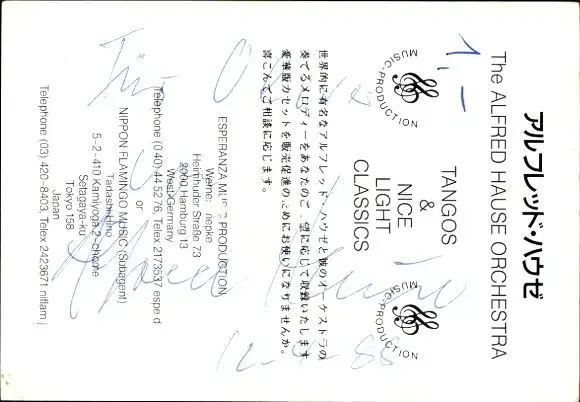 アルフレッド・ハウゼ
The ALFRED HAUSE ORCHESTRA
MUSIC-PRODUCTION
MUSIC-PRODUCTION
TANGOS
&
NICE
LIGHT
CLASSICS
世界的に有名なアルフレッド・ハウゼと彼のオーケストラの
奏でるメロディーをあなたのご 望に応じて収録いたします
愛華版カセットを販売促進のためにお使いになりませんか。
喜こんでご相談に応じます。
ESPERANZA MUSIC PRODUCTION
Werner epke
Heimhuder Straße 73
2000 Hamburg 13
West Germany
Telephone (0 40) 44 52 76, Telex 2173537 espe d
or
NIPPON FLAMINGO MUSIC (Subagent)
Tadashi
5-2-410 Kamiyoga 2-chome
Setagaya-ku
Tokyo 158
Japan
Telephone (03) 420-8403, Telex 2423671 niflam j
Für
1,-
Alfred Hause
88